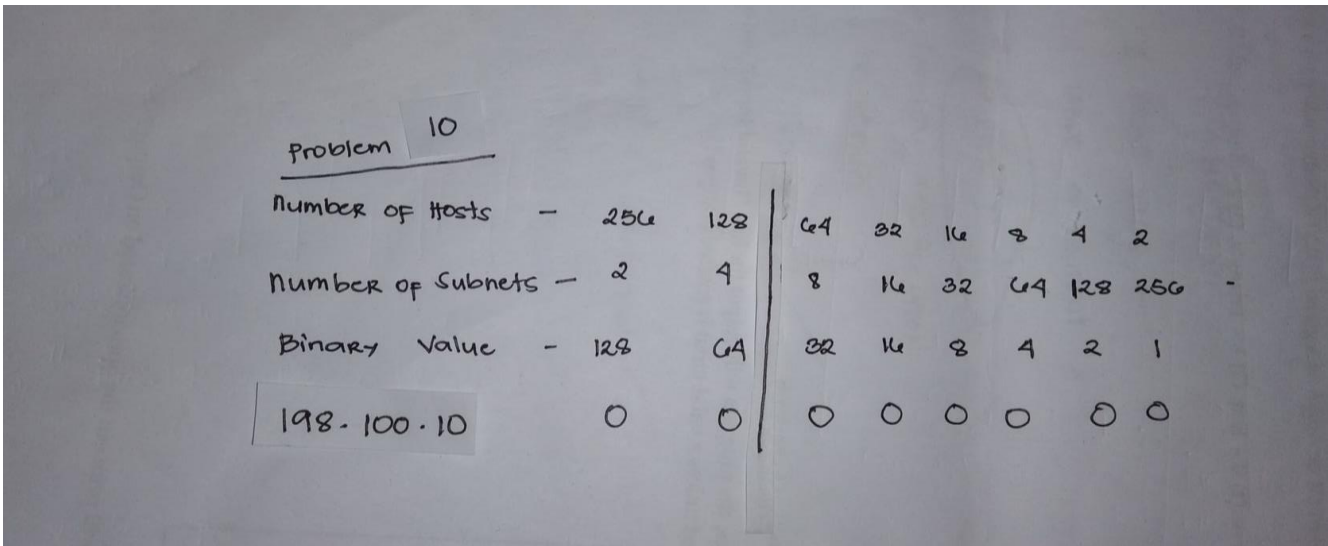 Problem 10
Number of Hosts - 256 128 64 32 16 8 4 2
Number of Subnets - 2 4 8 16 32 64 128 256 -
Binary Value - 128 64 32 16 8 4 2 1
198.100.10 0 0 0 0 0 0 0 0